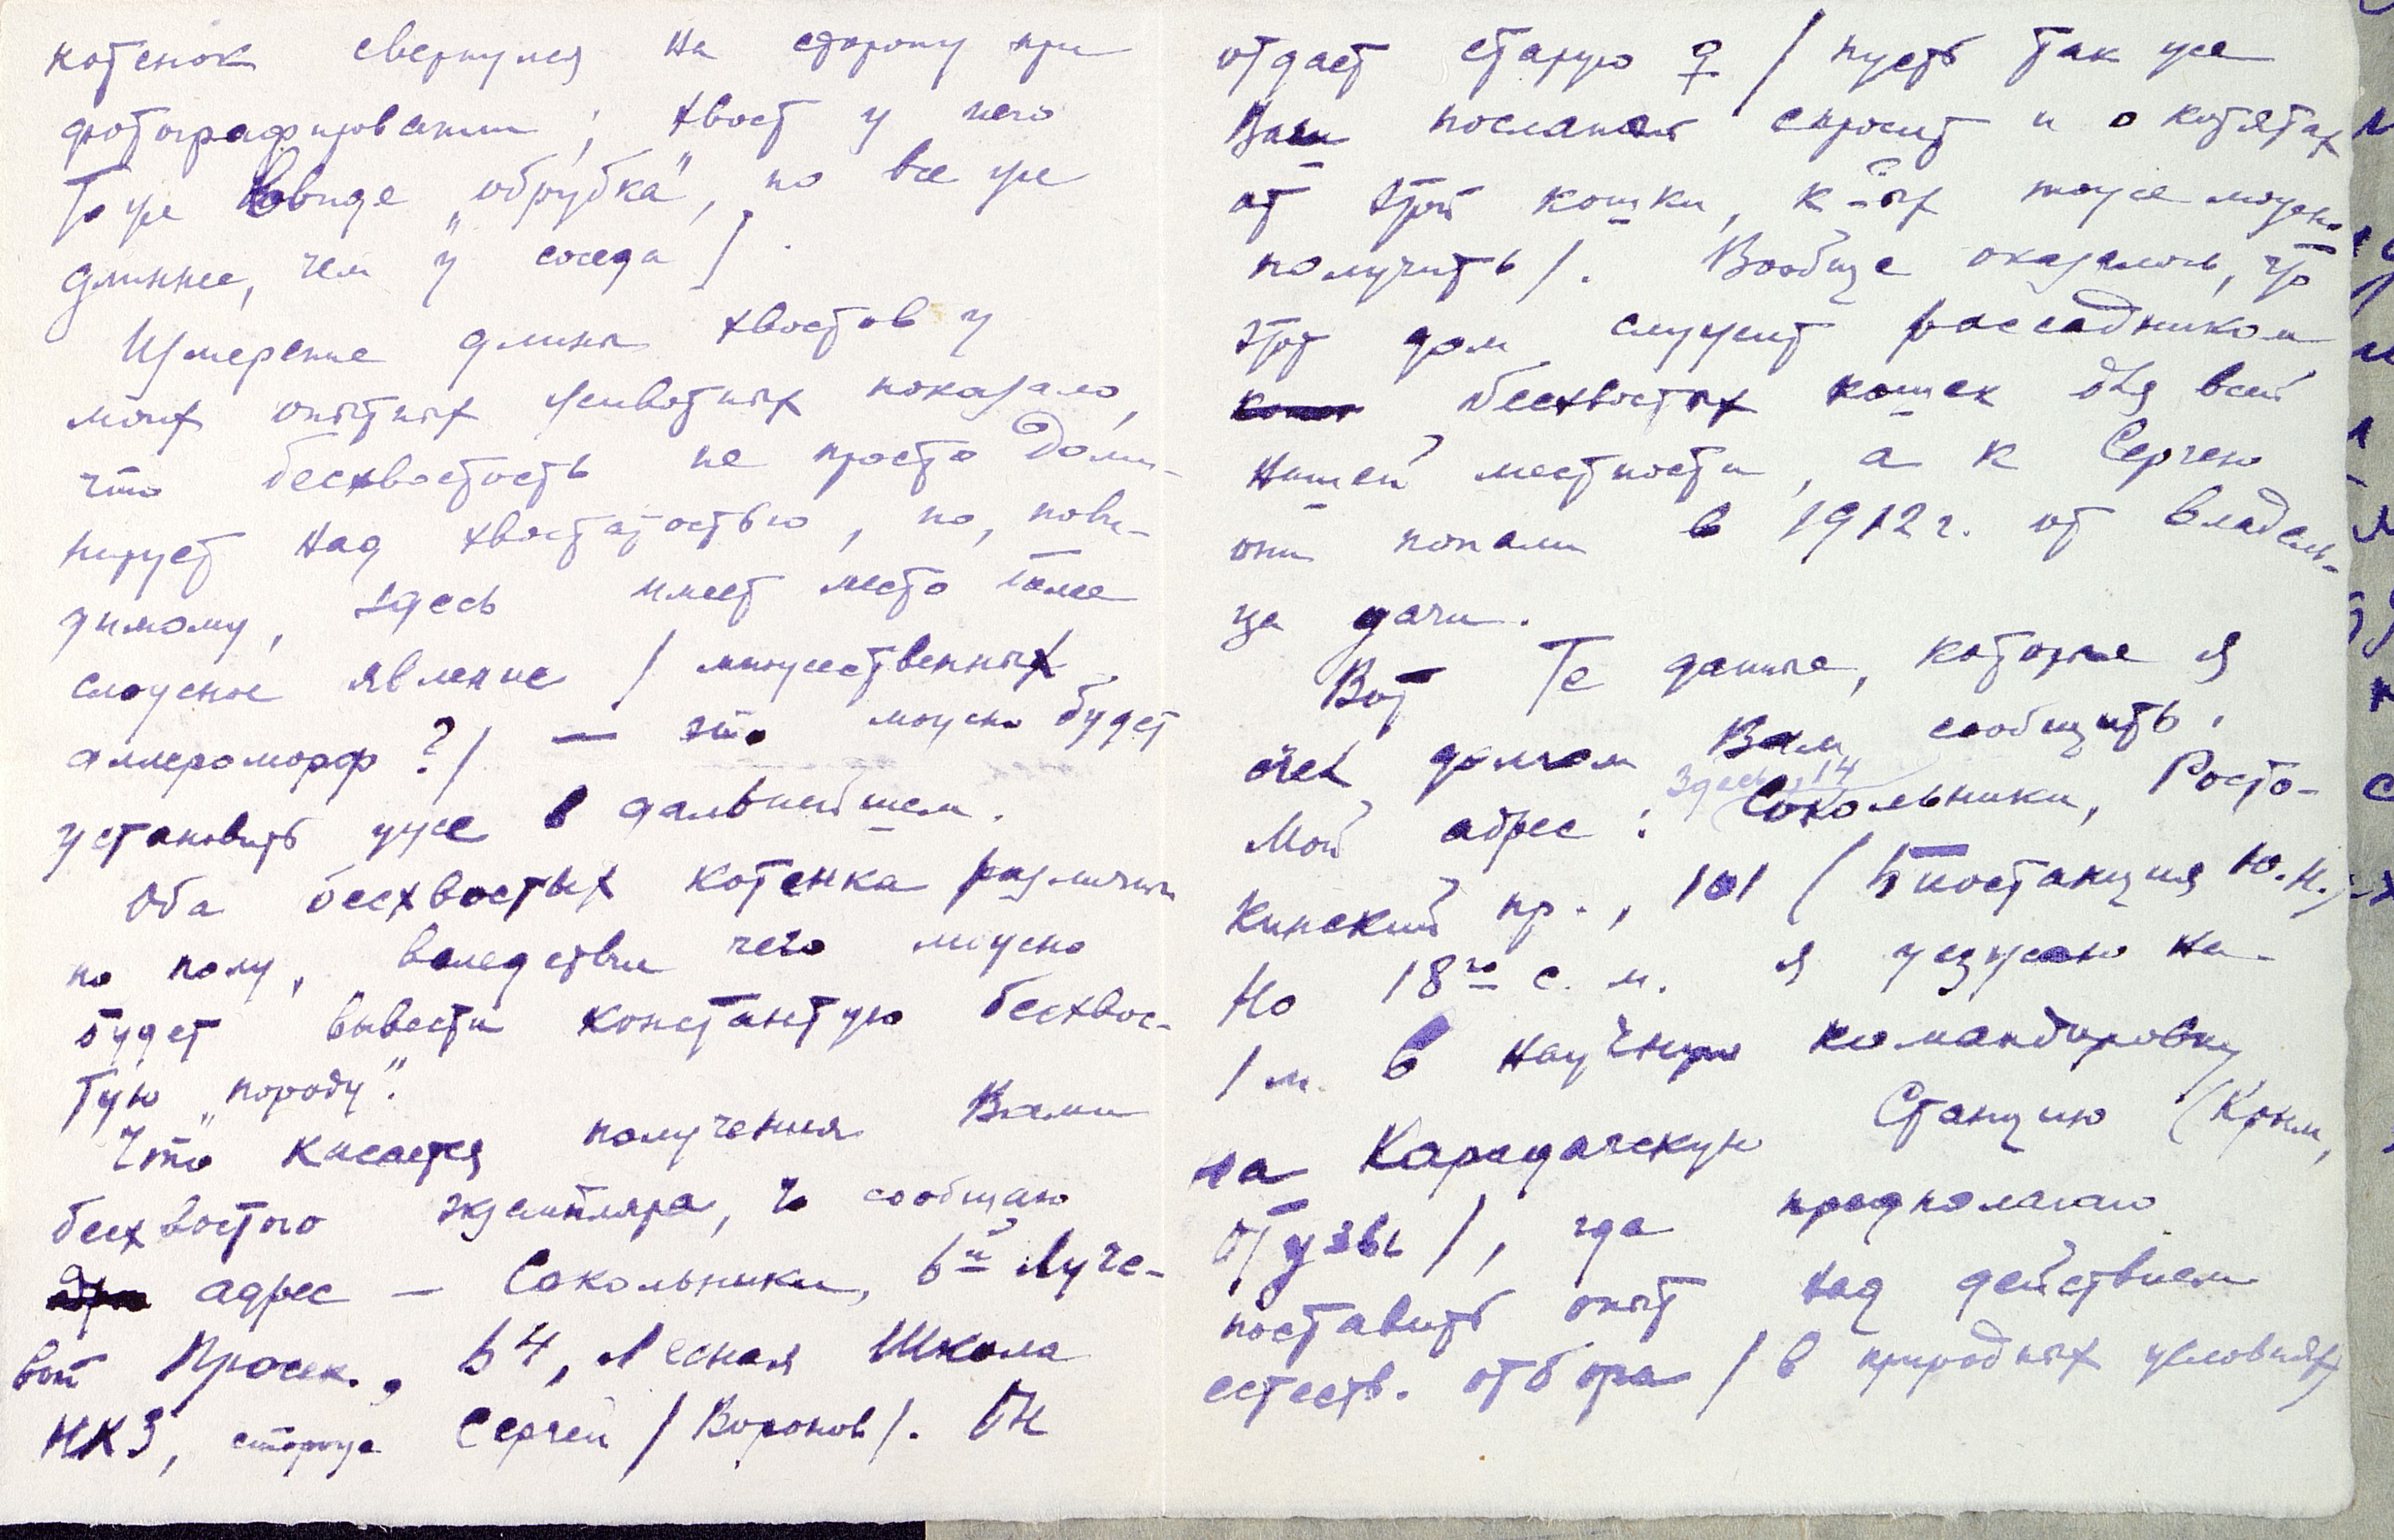 котенок свернулся на сторону при
фотографировании; хвост у него
тоже ввиде „обрубка", но все же
длиннее, чем у соседа/.
Измерение длины хвостов у
моих опытных животных показало,
что бесхвостость не просто доми-
нирует над хвостатостью, но, пови-
димому, здесь имеет место более
сложное явление /множественный
аллероморф?/ — это можно будет
установить уже в дальнейшем.
Оба бесхвостых котенка различны
по полу, вследствие чего можно
будет вывести константную бесхвос-
тую „породу".
Что касается получения Вами
бесхвостого экземпляра, то сообщаю
адрес — Сокольники, 6й Луче-
вой Просек., 64, Лесная Школа
НКЗ, сторож Сергей /Воронов/. Он
отдает старую ♀ /пусть так же
Ваш посланный спросит и о котятах
от этой кошки, к-ых тоже можно
получить/. Вообще оказалось, что
этот дом служит рассадником
бесхвостых кошек для всей
нашей местности, а к Сергею
они попали в 1912 г. от владель-
ца дачи.
Вот те данные, которые я
счел долгом Вам сообщить.
Мой адрес: Здесь, 14 Сокольники, Росто-
кинский пр., 101 /Биостанция Ю.Н./
Но 18го с. м. я уезжаю на
1 м. в научную командировку
на Карадагскую Станцию (Крым,
Отузы/, где предполагаю
поставить опыт над действием
естеств. отбора /в природных условиях/